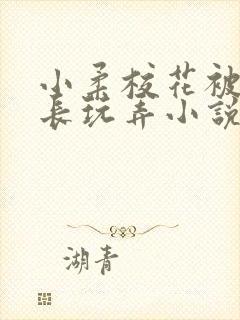 小柔校花被
长玩弄小説
湖青